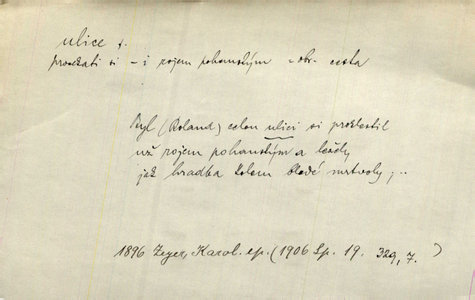 ulice f.
proklati si – i rojem pohanským = obr. cesta
Byl (Roland) celou ulici si proklestil
už rojem pohanským a ležely
jak hradba kolem bledé mrtvoly; ..
1896 Zeyer, Karol. ep. (1906 Sp. 19. 329, 7. )